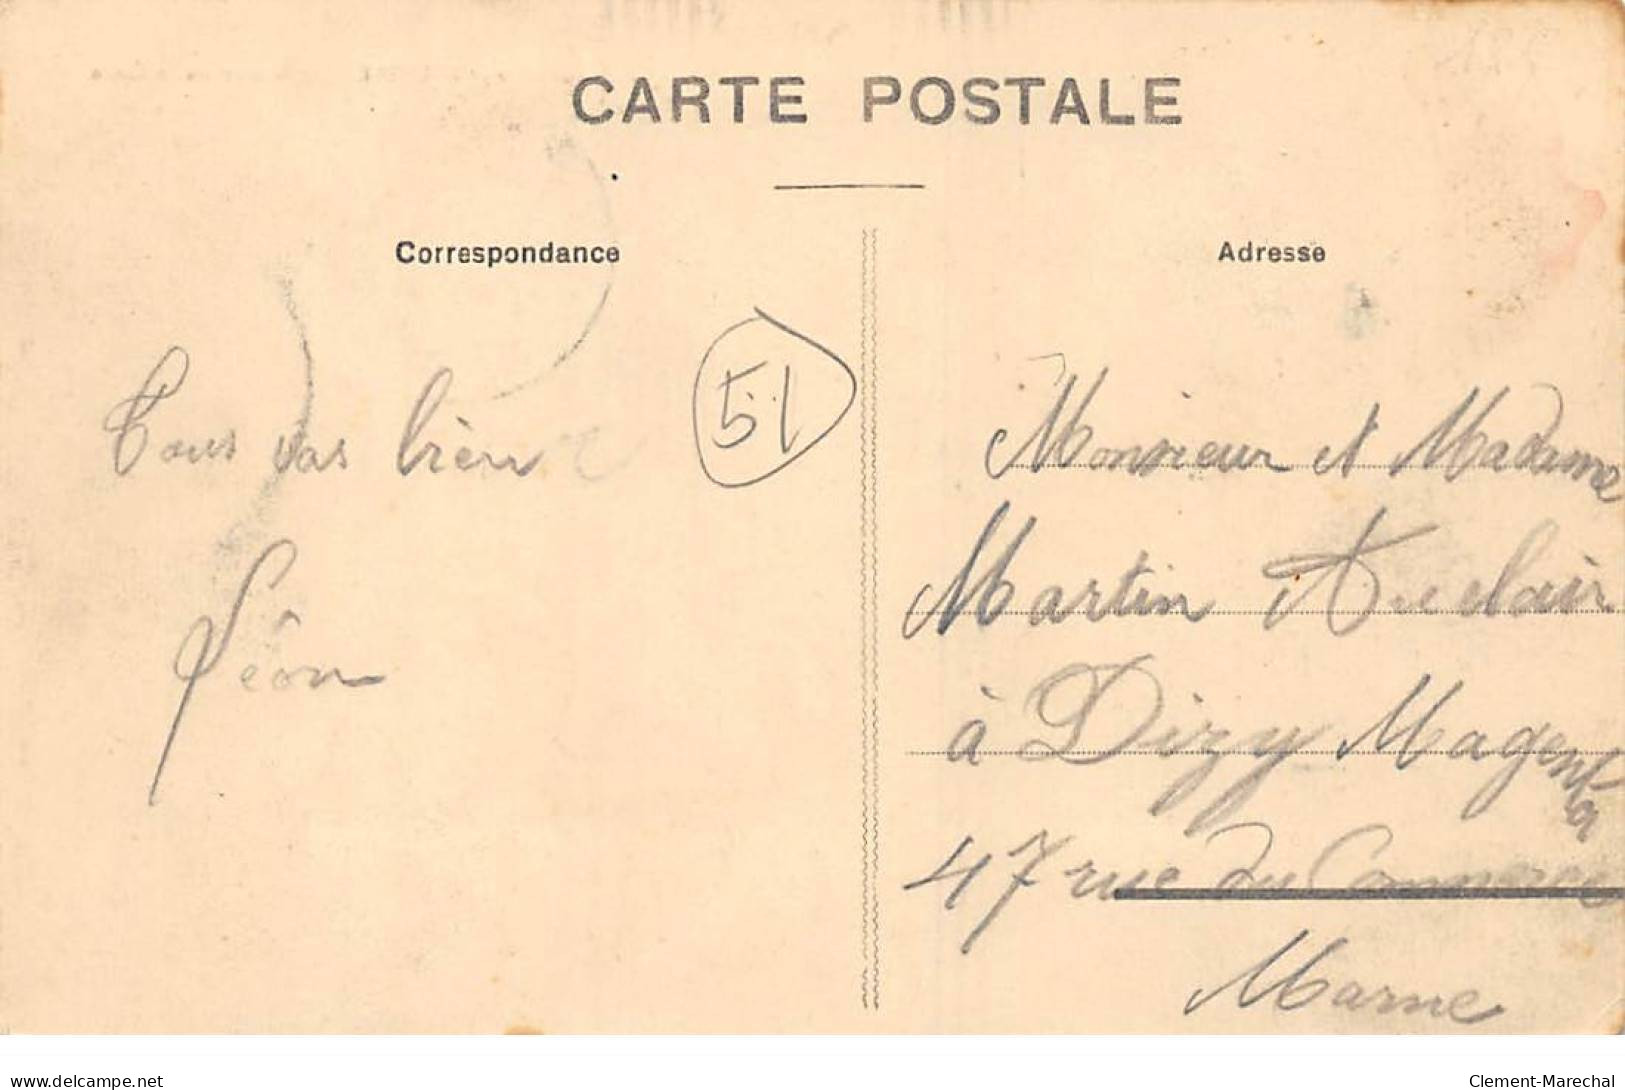 CARTE POSTALE
Correspondance
Adresse
51
Tous vas bien
Léon
Monsieur et Madame
Martin Auclair
à Dizy Magenta
47 rue du Commerce
Marne
delcampe.net
Clement-Marechal